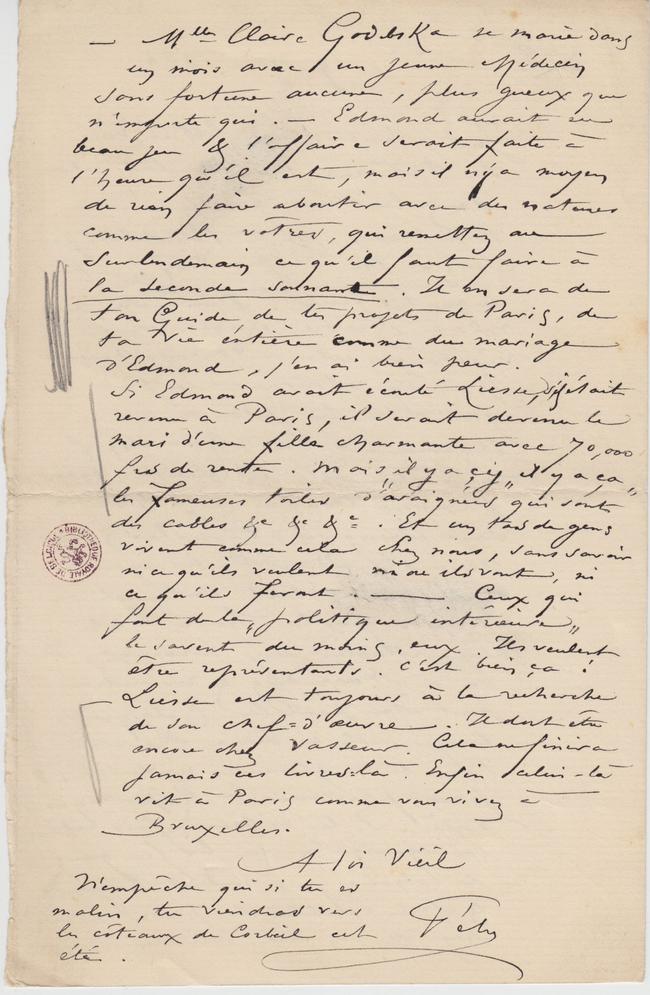 — Mlle Claire Godebska se marie dans
un mois avec un jeune Médecin
sans fortune aucune, plus gueux que
n'importe qui. — Edmond aurait eu
beau jeu & l'affaire serait faite à
l'heure qu'il est, mais il n'y a moyen
de rien faire aboutir avec des natures
comme les vôtres, qui remettez au
surlendemain ce qu'il faut faire à
la seconde sonnante. Il en sera de
ton Guide de tes projets de Paris, de
ta vie entière comme du mariage
d'Edmond, j'en ai bien peur.
Si Edmond avait écouté Liesse, s'était
revenu à Paris, il serait devenu le
mari d'une fille charmante avec 70,000
frs de rente. Mais „il y a çi„ „il y a ça„
les fameuses toiles d'araignées qui sont
des cables &c &c &c. Et un tas de gens
vivent comme cela chez nous, sans savoir
ni ce qu'ils veulent ni où ils vont, ni
ce qu'ils feront. — Ceux qui
font de la „politique intérieure„
le savent du moins, eux. Ils veulent
être représentants. C'est bien ça!
Liesse est toujours à la recherche
de son chef=d'œuvre. Il doit être
encore chez Vasseur. Cela ne finira
jamais ces livres=là. Enfin celui-là
vit à Paris comme vous vivez à
Bruxelles.
A toi Vieil
N'empêche que si tu es
malin, tu viendras vers
les côteaux de Corbeil cet
été.
Fély
BIBLIOTHÈQUE ROYALE DE BELGIQUE